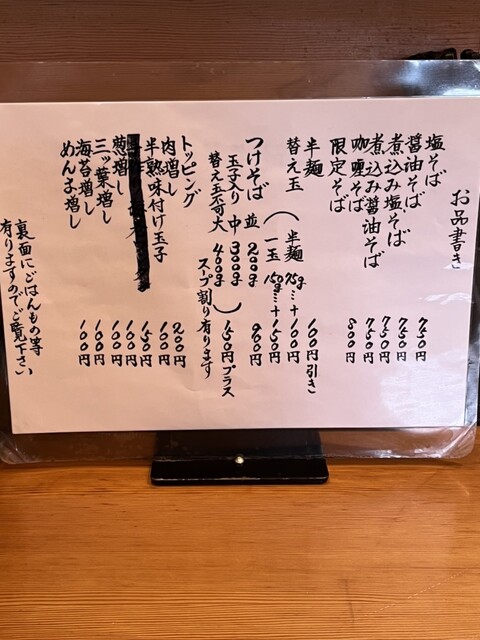 お品書き
塩そば 750円
醤油そば 750円
煮込み塩そば 750円
煮込み醤油そば 750円
咖喱そば
限定そば 800円
半麺 100円引き
替え玉(半麺 75g…+100円
一玉 150g…+150円
つけそば 並 200g 900円
玉子入り 中 300g
替え玉不可 大 400g)150円プラス
スープ割り有ります
トッピング
肉増し 200円
半熟味付け玉子 100円
葱増し
三ッ葉増し 100円
海苔増し 100円
めんま増し 100円
裏面にごはんもの等
有りますのでご覧下さい